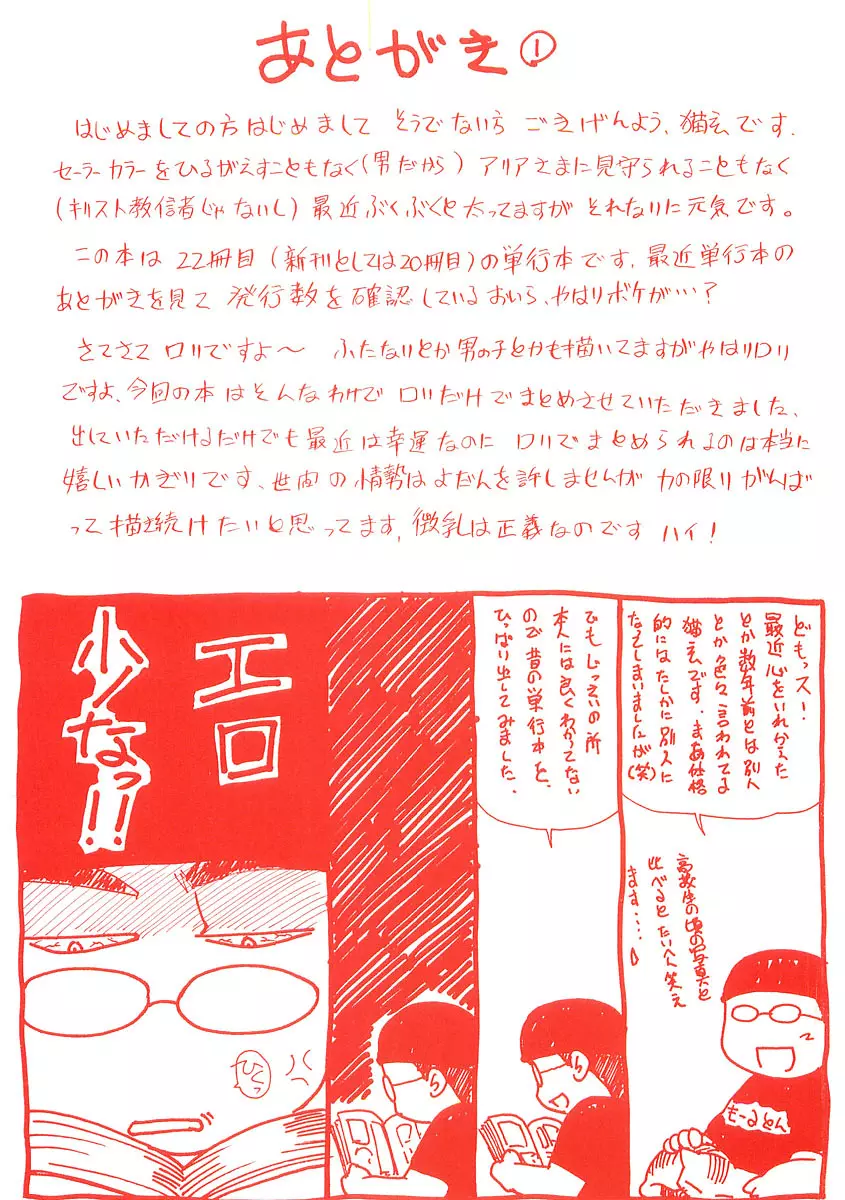 あとがき①
はじめましての方はじめまして そうでない方 ごきげんよう、猫玄です.
セーラーカラーをひるがえすこともなく(男だから) アリアさまに見守られることもなく
(キリスト教信者じゃないし) 最近ぶくぶくと太ってますが それなりに元気です。
この本は 22冊目 (新刊としては20冊目)の単行本です. 最近単行本の
あとがきを見て 発行数を確認しているおいら、やはりボケが…?
さてさて ロリですよ〜 ふたなりとか男の子とかも描いてますがやはりロリ
ですよ、今回の本はそんなわけで ロリだけでまとめさせていただきました、
出していただけるだけでも最近は幸運なのに ロリでまとめられるのは本当に
嬉しいかぎりです、世間の情勢はよだんを許しませんが 力の限りがんば
って描き続けたいと思ってます, 微乳は正義なのです ハイ!
どもっス!
最近心をいれかえた
とか数年前とは別人
とか色々言われてる
猫玄です. まあ仕様
的にはたしかに別人に
なってしまいましたが(笑)
高校生の頃の写真と
比べるとたいへん笑え
ます....
もーるとん
でもじっさいの所
本人には良くわかってない
ので昔の単行本を、
ひっぱり出してみました.
エロ
少ノなっ!!
ひくっ